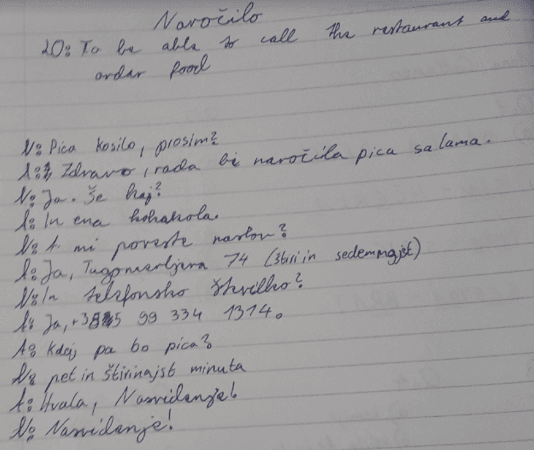 Naročilo
LO: To be able to call the restaurant and
order food
N: Pica kosilo, prosim?
A: Zdravo, rada bi naročila pica salama.
N: Ja. Še kaj?
A: In ena kokakola.
N: A mi poveste naslov?
A: Ja, 74 (štiri in sedemnajst)
N: In telefonsko številko?
A: Ja, 99 334 1314.
A: Kdaj pa bo pica?
N: pet in štirinajst minuta
A: Hvala, Nasvidenje!
N: Nasvidenje!